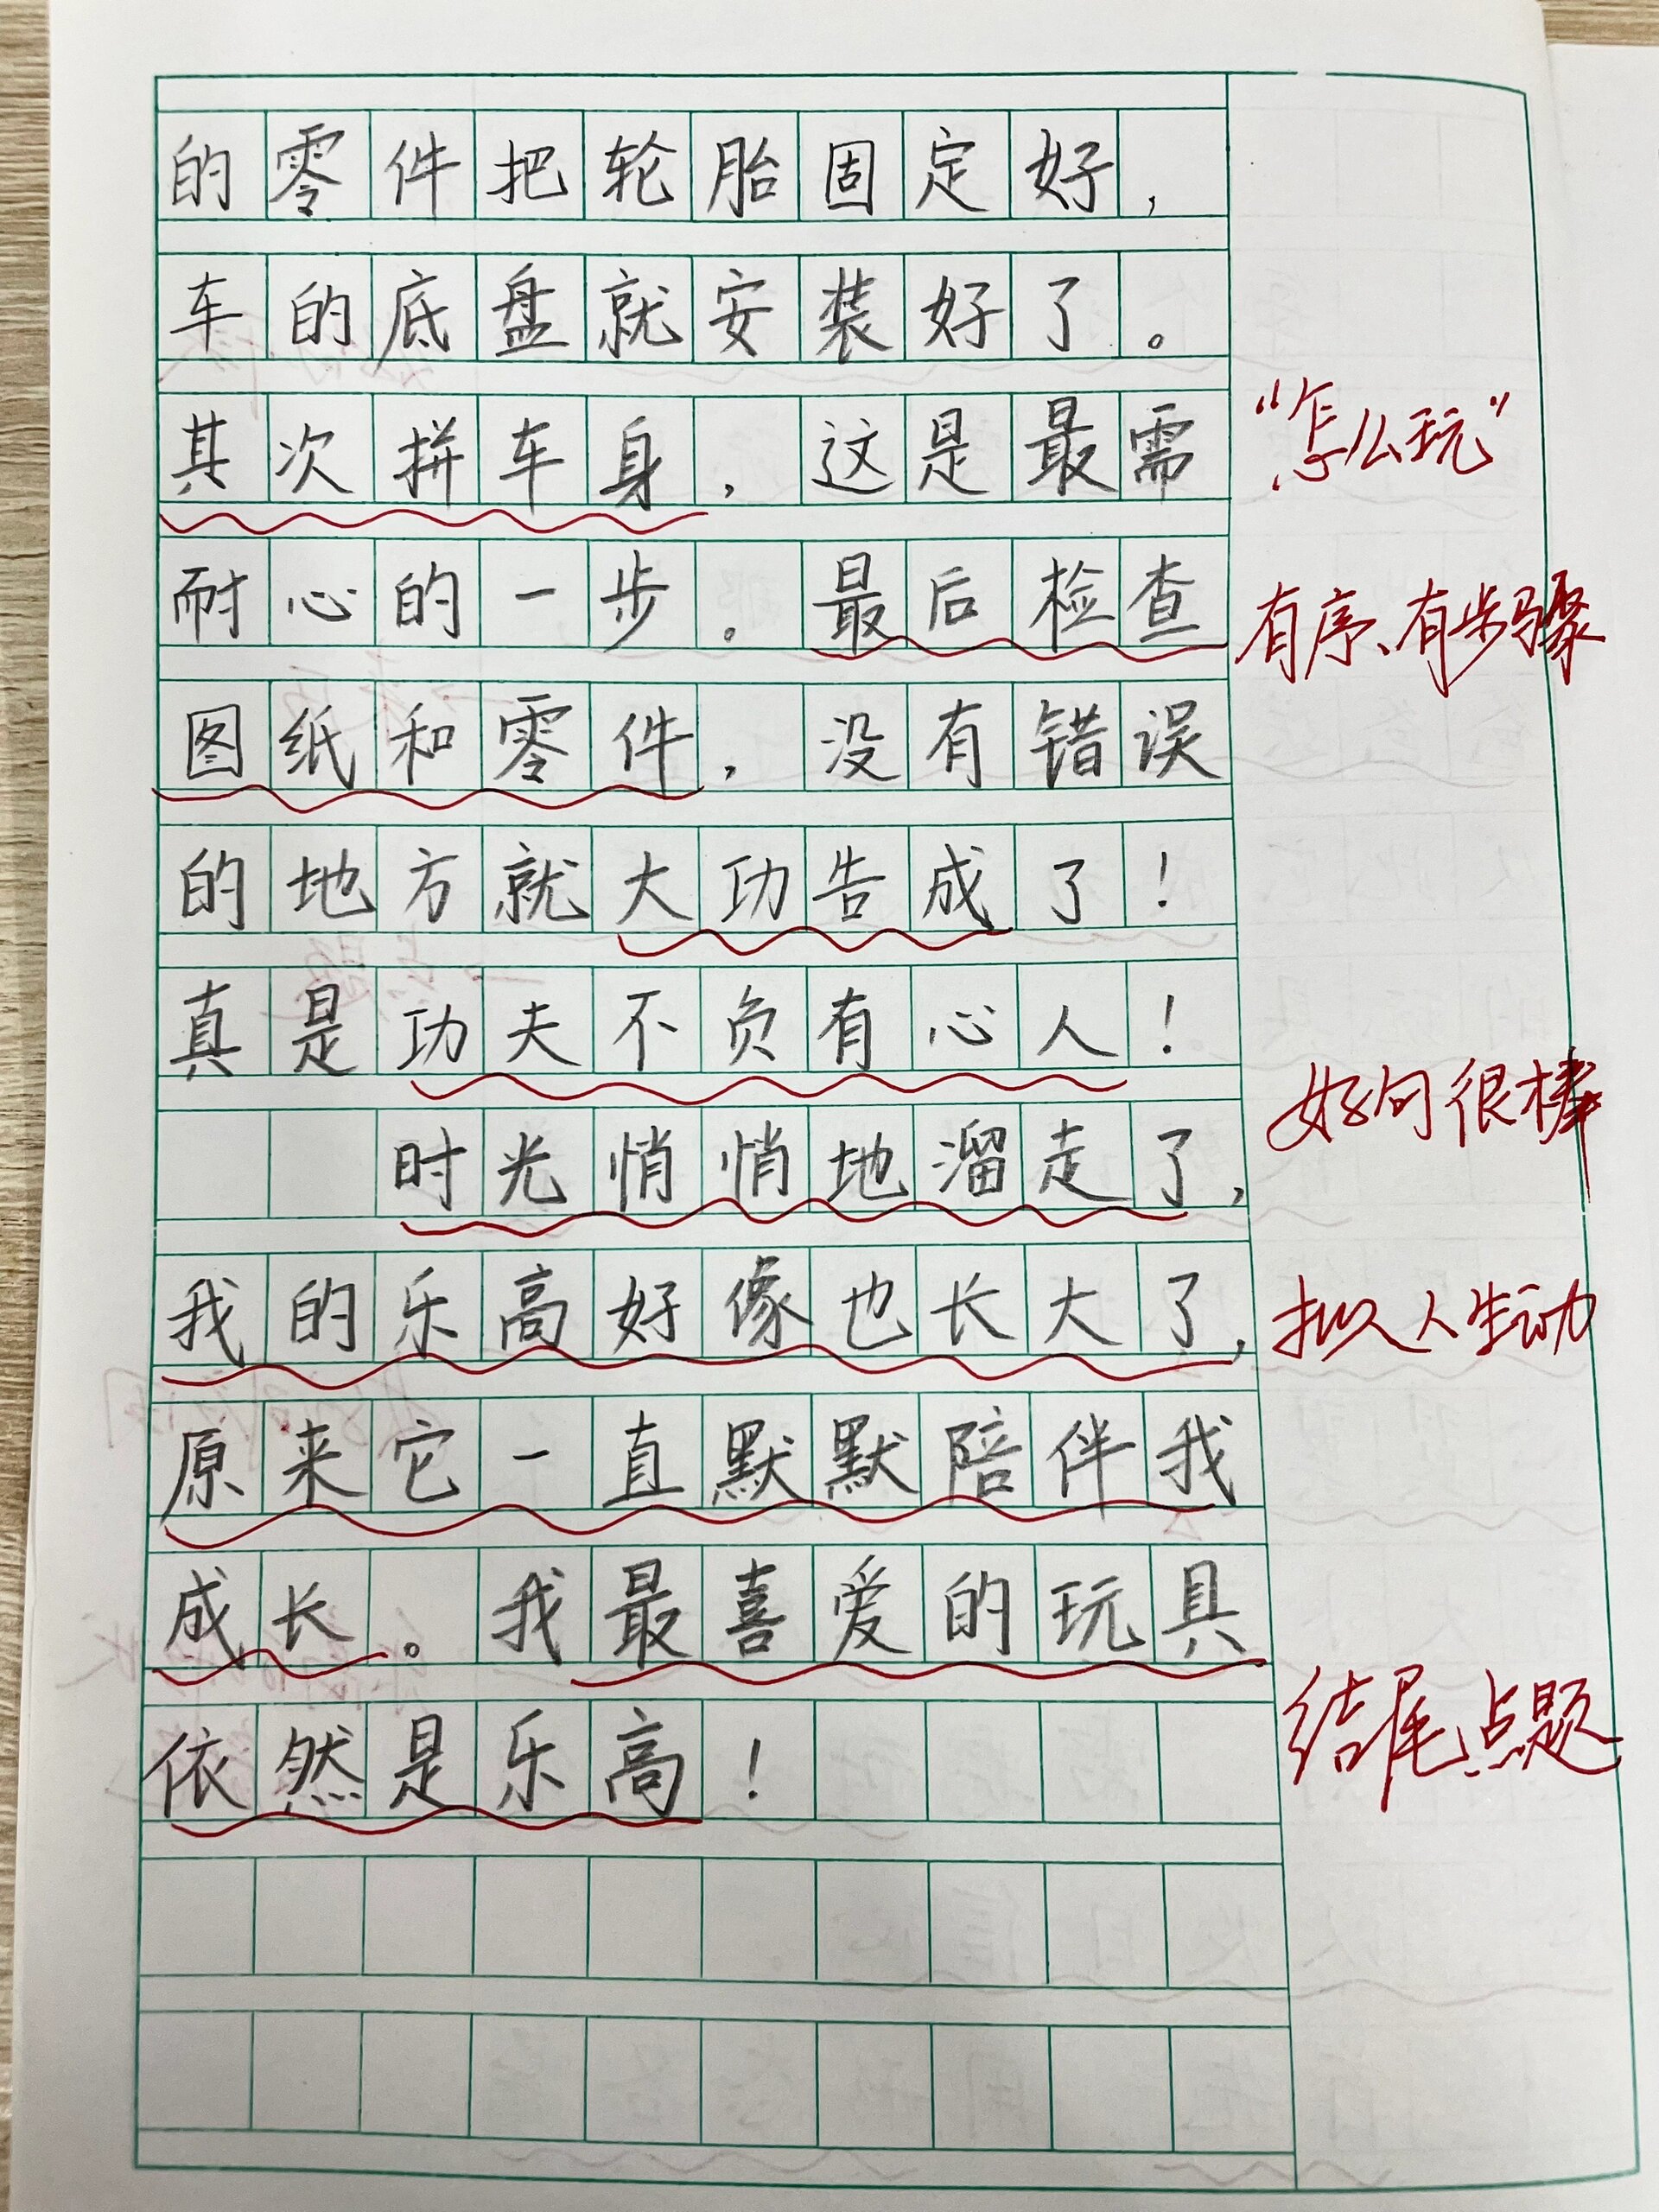 的零件把轮胎固定好，
车的底盘就安装好了。
其次拼车身，这是最需
“怎么玩”
耐心的一步。最后检查
有序、有步骤
图纸和零件，没有错误
的地方就大功告成了！
真是功夫不负有心人！
好句很棒
时光悄悄地溜走了，
我的乐高好像也长大了，
拟人生动
原来它一直默默陪伴我
成长。我最喜爱的玩具
结尾点题
依然是乐高！